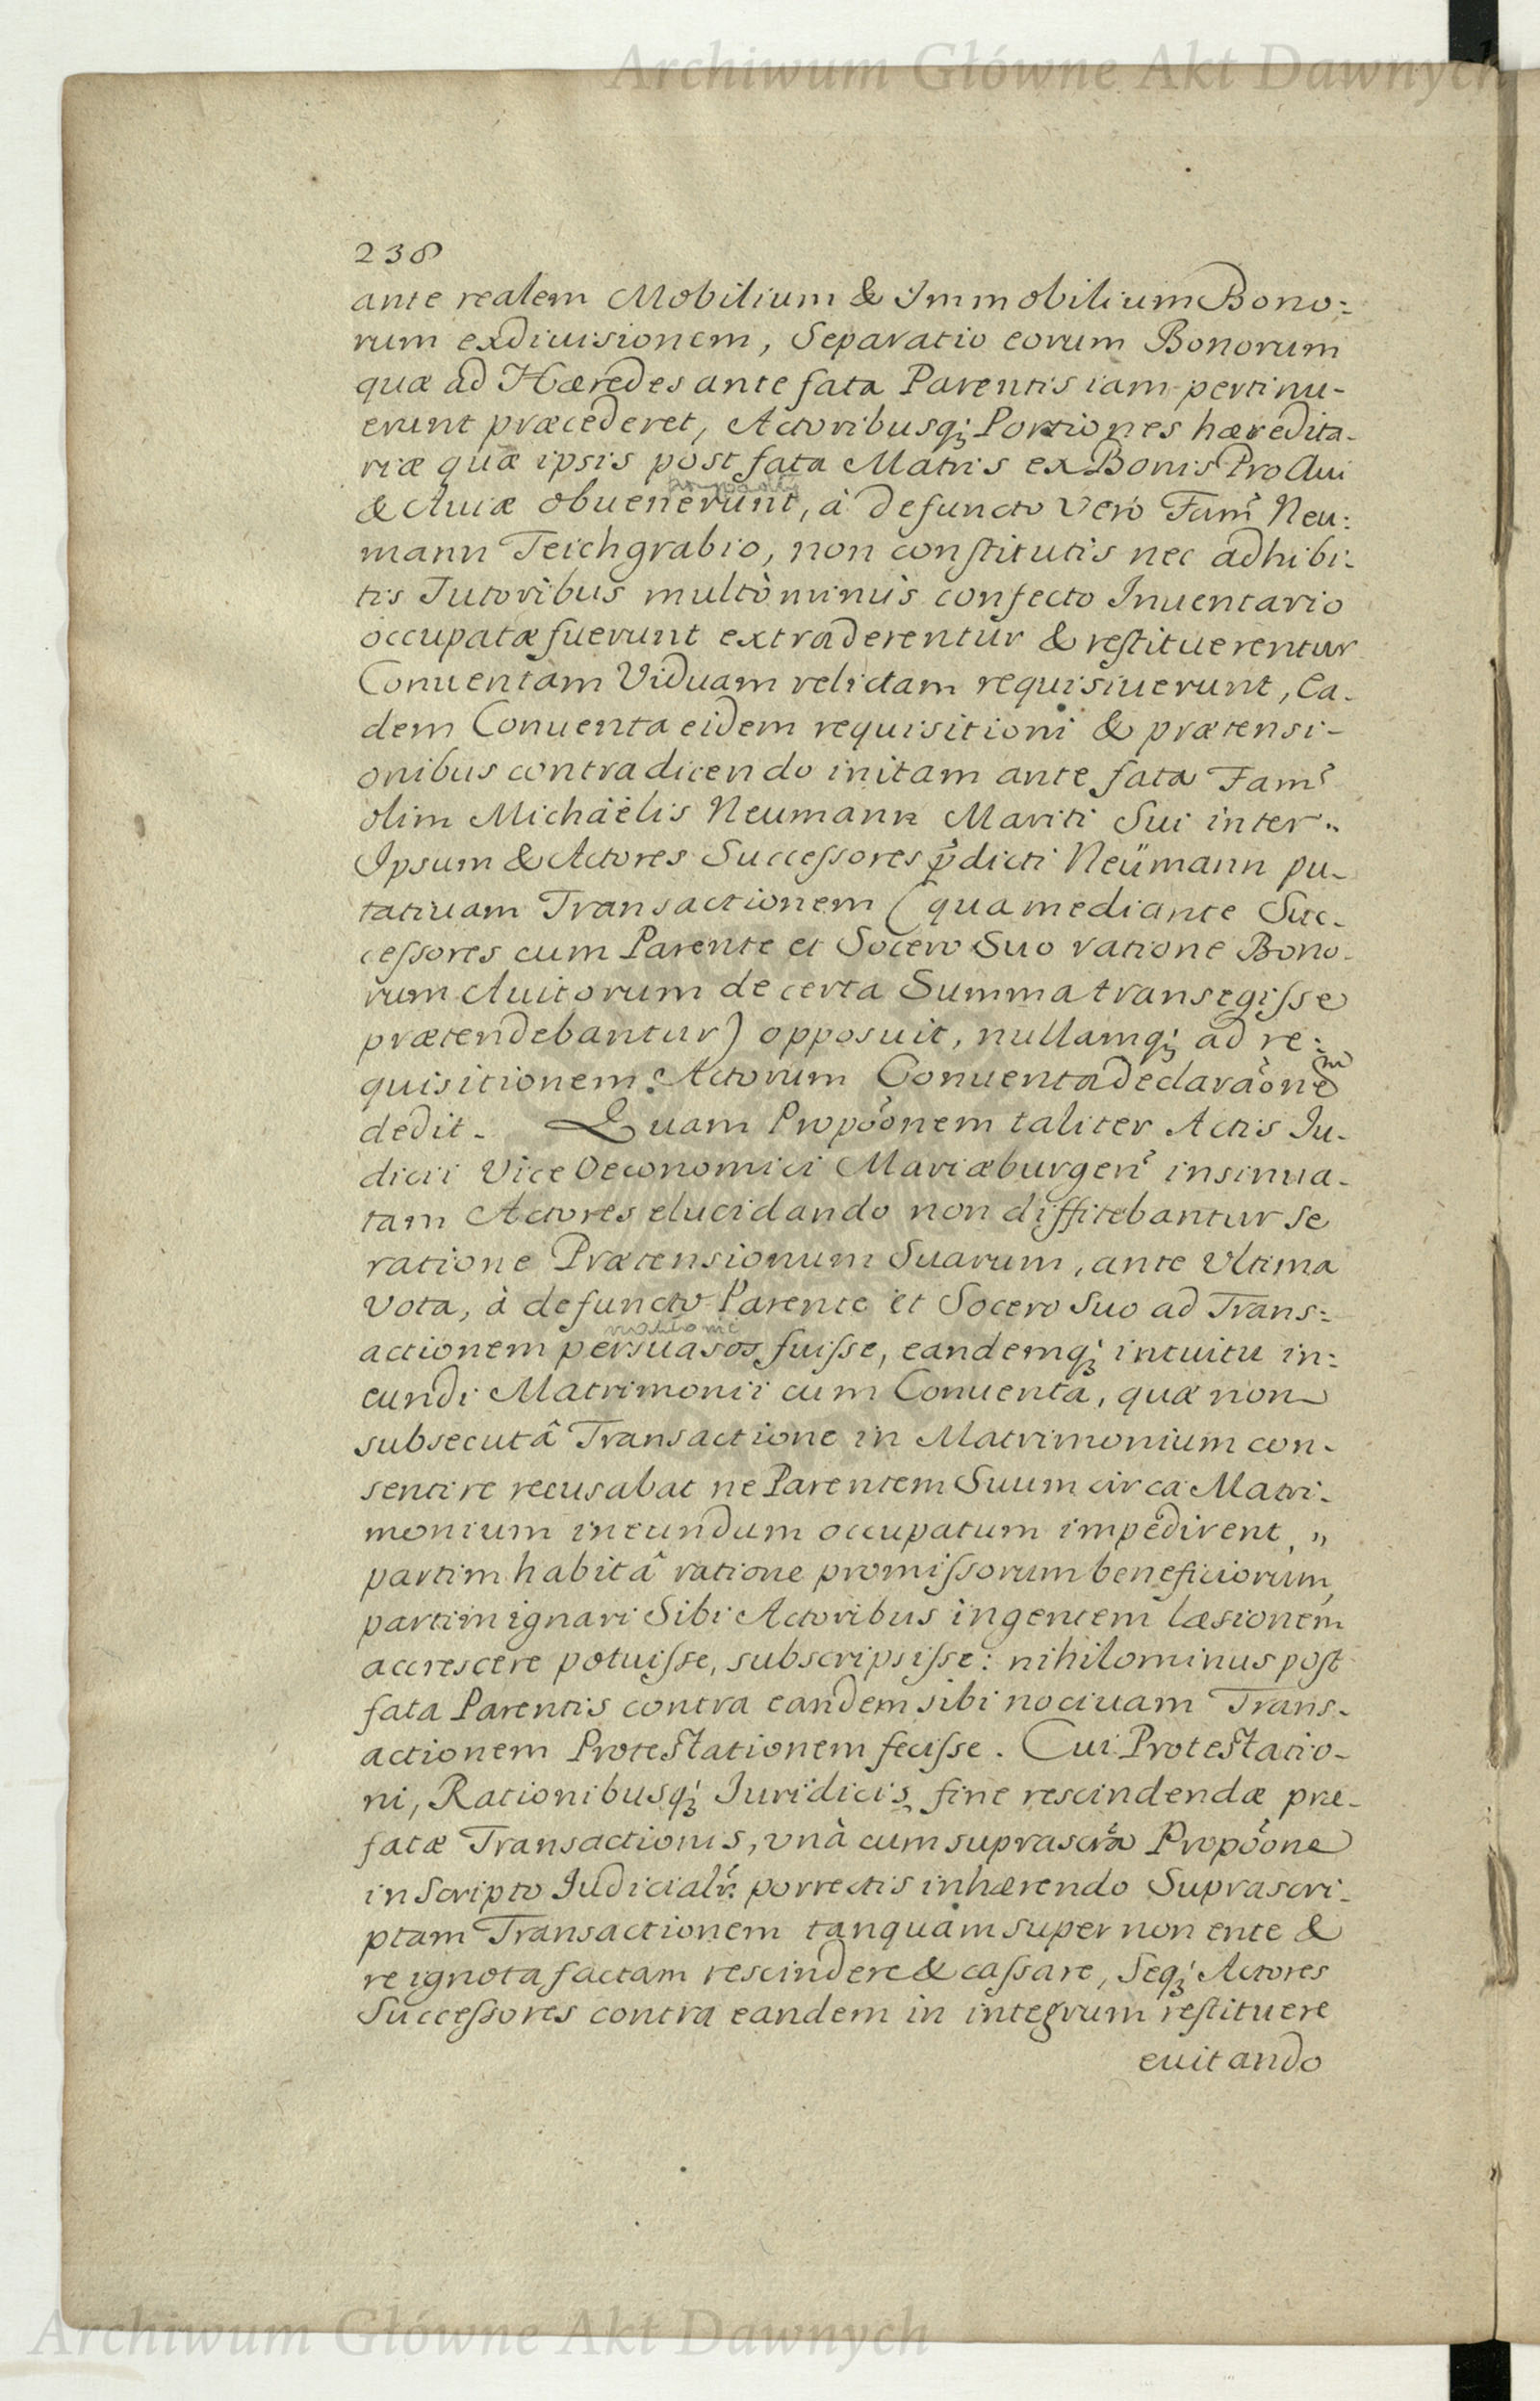 Archiwum Główne Akt Dawnych
238
ante realem Mobilium & Immobilium Bono:
rum exdiuisionem, Separatio eorum Bonorum
quæ ad Hæredes ante fata Parentis iam pertinu-
erunt præcederet, Actoribusq; Portiones hæredita-
riæ quæ ipsis post fata Matris ex Bonis ProAui
& Auiæ obuenerunt, à defuncto verò Fam̃ Neu:
mann Teichgrabio, non constitutis nec adhibi-
tis Tutoribus multò minùs confecto Inuentario
occupatæ fuerunt extraderentur & restituerentur
Conuentam Viduam relictam requisiuerunt, Ea-
dem Conuenta eidem requisitioni & prætensi-
onibus contradicendo initam ante fata Fam̃
olim Michaëlis Neumann Mariti Sui inter„
Ipsum & Actores Successores p̃dicti Neümann pu-
tatiuam Transactionem (qua mediante Suc-
cessores cum Parente et Socero Suo ratione Bono-
rum Auitorum de certa Summa transegisse
prætendebantur) opposuit, nullamq; ad re:
quisitionem Actorum Conuenta declarãonem
dedit. Quam Propõonem taliter Actis Iu-
dicii Vice Oeconomici Mariæburgeñ insinua-
tam Actores elucidando non diffitebantur se
ratione Prætensionum Suarum, ante Ultima
Vota, à defuncto Parente et Socero Suo ad Trans:
actionem persuasos fuisse, eandemq; intuitu in:
eundi Matrimonii cum Conuenta, quæ non
subsecutâ Transactione in Matrimonium con-
sentire recusabat ne Parentem Suum circa Matri-
monium ineundum occupatum impedirent, „
partim habitâ ratione promissorum beneficiorum,
partim ignari Sibi Actoribus ingentem læsionem
accrescere potuisse, subscripsisse: nihilominus post
fata Parentis contra eandem sibi nociuam Trans-
actionem Protestationem fecisse. Cui Protestatio-
ni, Rationibusq; Iuridicis fine rescindendæ præ-
fatæ Transactionis, vnà cum suprascrã Propõone
in Scripto Iudicialr̃ porrectis inhærendo Suprascri-
ptam Transactionem tanquam super non ente &
re ignota factam rescindere & cassare, Seq; Actores
Successores contra eandem in integrum restituere
euitando
Archiwum Główne Akt Dawnych